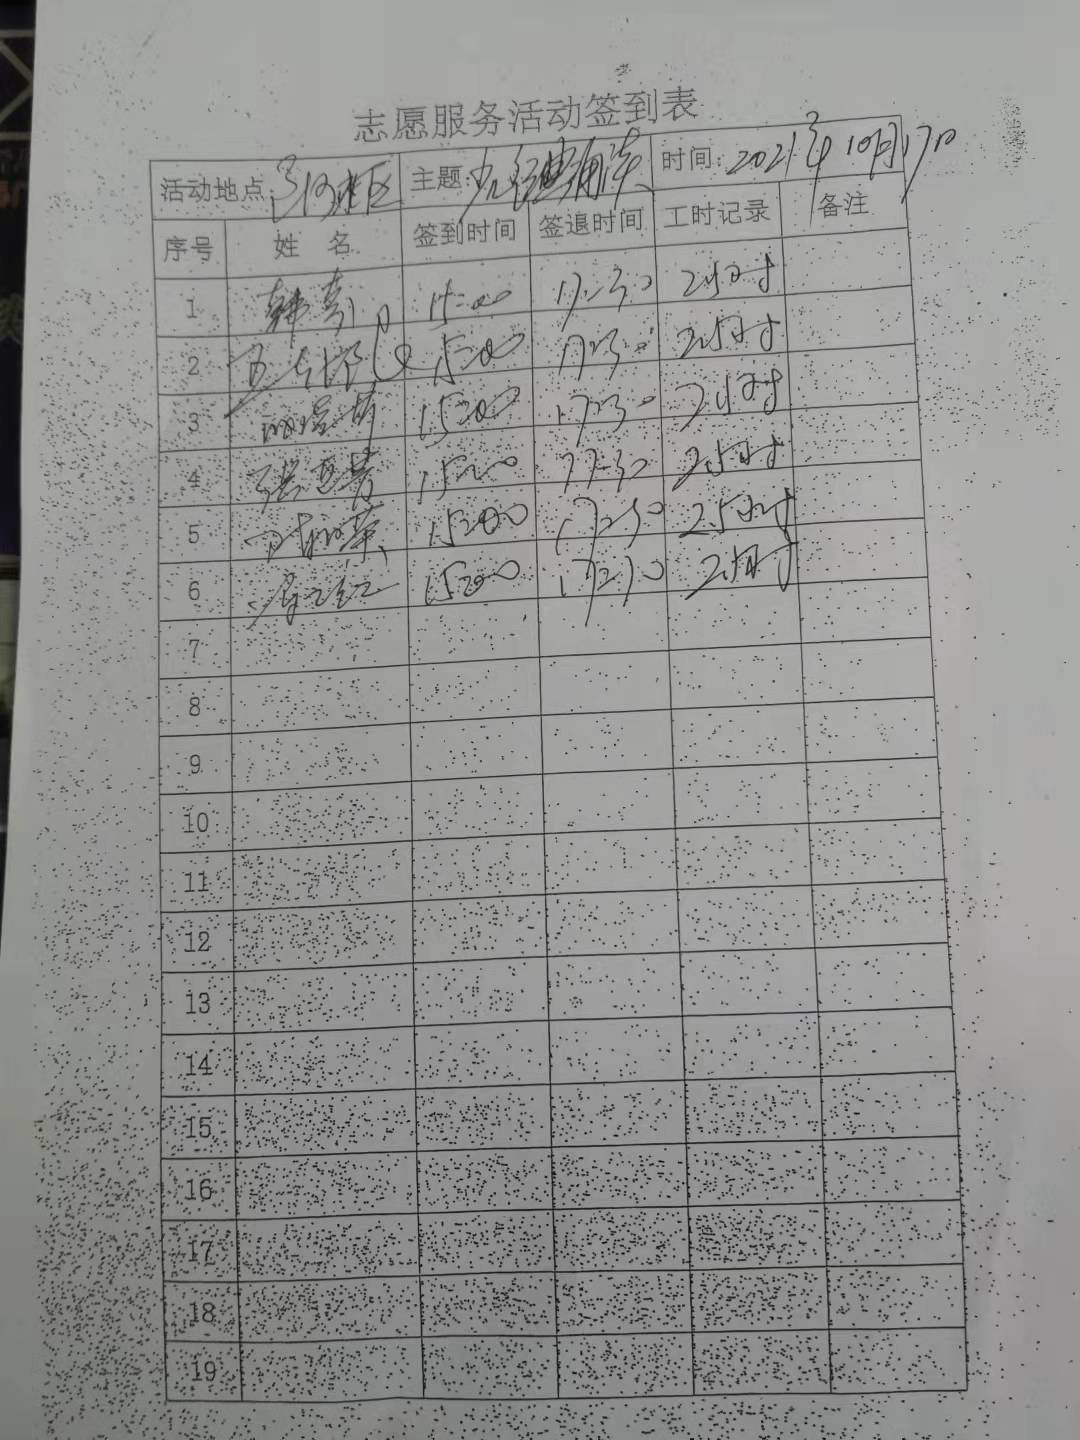 志愿服务活动签到表
活动地点: 三河社区 主题: 经典诵读 时间: 2021年10月17日
序号 姓 名 签到时间 签退时间 工时记录 备注
1 15:00 17:30 2.5小时
2 15:00 17:30 2.5小时
3 15:00 17:30 2.5小时
4 15:00 17:30 2.5小时
5 15:00 17:30 2.5小时
6 15:00 17:30 2.5小时
7
8
9
10
11
12
13
14
15
16
17
18
19